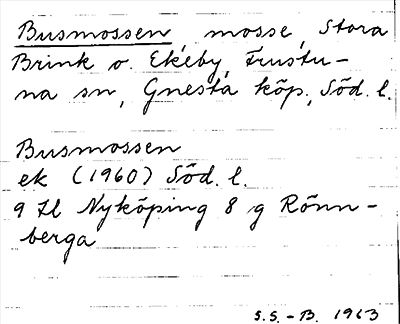 Busmossen, mosse, Stora
Brink o. Ekeby, Frustu-
na sn, Gnesta köp, Söd. l.
Busmossen
ek (1960) Söd. l.
9 Nyköping 8 g Rönn-
berga
S.S.-B. 1963